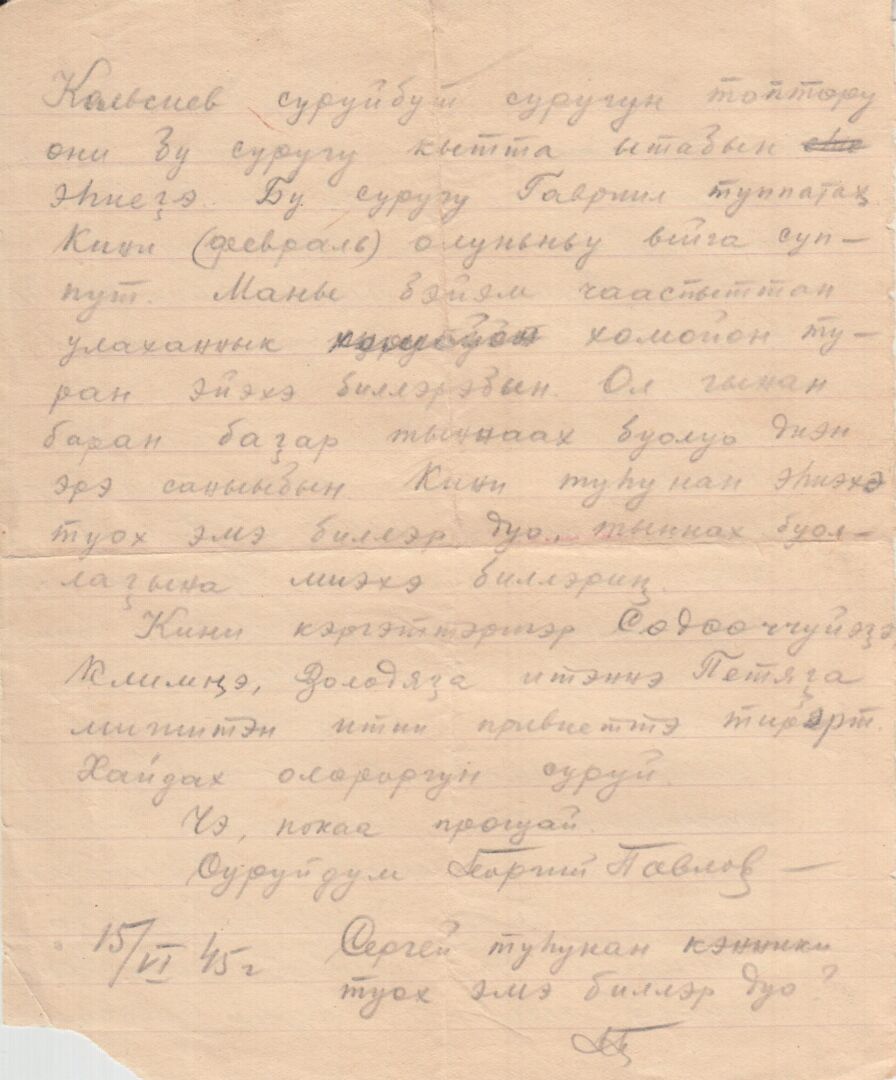 Кальсиев суруйбут суругун топтору
они бу суругу кытта ытабын
эһиеҕэ. Бу суругу Гавриил туппатах
Кини (февраль) олунньу ыйга суп-
пут. Маны бэйэм чааспыттан
улаханнык хомойон ту-
ран эйэхэ биллэрэбын. Ол гынан
баран баҕар тыннаах буолуо диэн
эрэ саныыбын Кини туһунан эһиэхэ
туох эмэ биллэр дуо, тыннах буол-
лаҕына миэхэ биллэриҥ.
Кини кэргэттэригэр
Климҥэ, Володяҕа итэннэ Петяҕа
мигиитэн итии привиеттэ тирэрт.
Хайдах олороргун суруй.
Чэ, покаа прощай.
Суруйдум Георгий Павлов —
15/VI 45 г
Сергей туһунан кэнники
туох эмэ биллэр дуо?